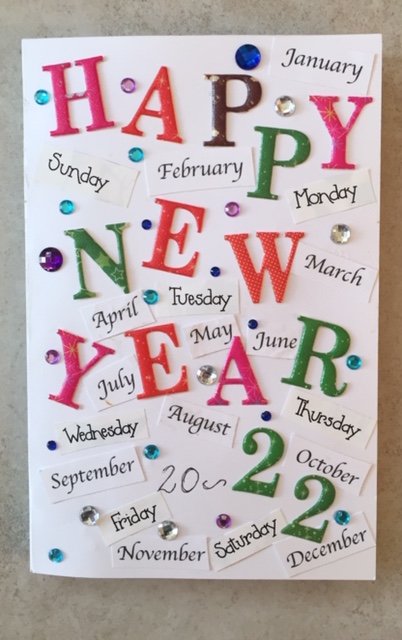 January
HAPPY
Sunday February Monday
NEW
March
April Tuesday
May June
YEAR
July
August Thursday
Wednesday
September 20~22 October
Friday
November Saturday December